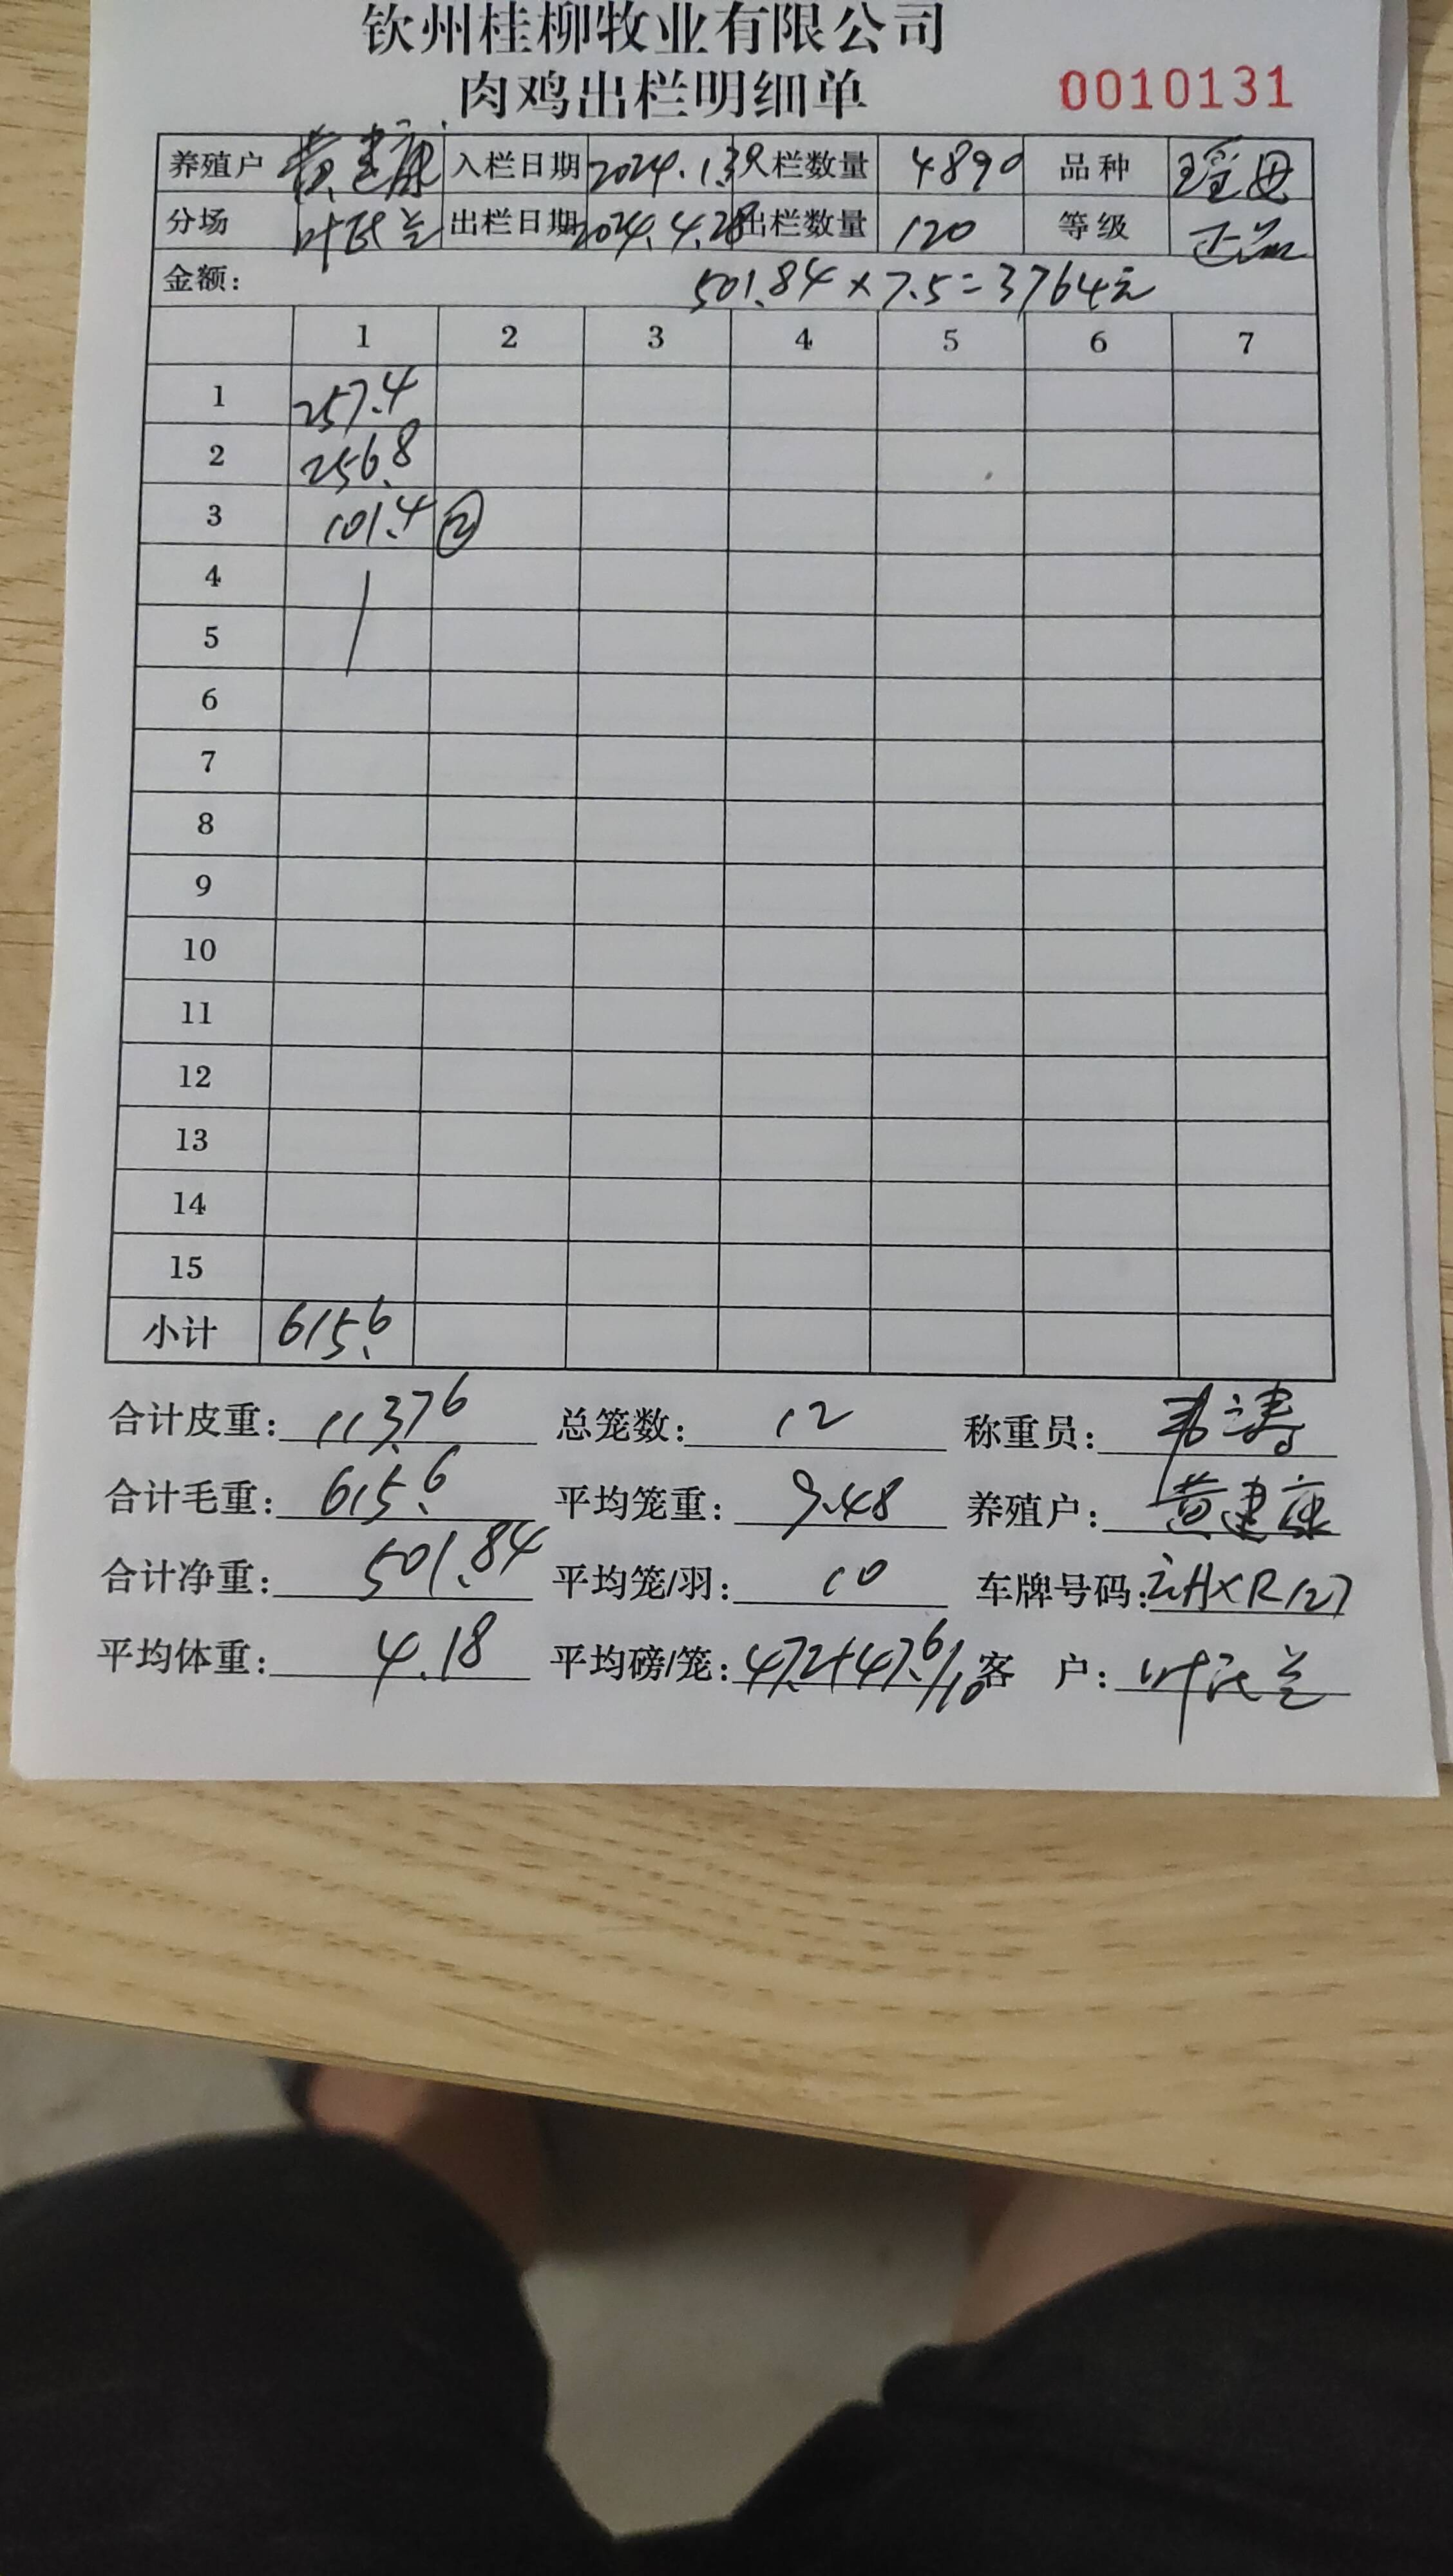 钦州桂柳牧业有限公司
肉鸡出栏明细单 0010131
养殖户 黄建康 入栏日期 2024.1.3 入栏数量 4890 品种 瑶母
分场 叶民兰 出栏日期 2024.4.28 出栏数量 120 等级 正品
金额: 501.84×7.5=3764元
1 2 3 4 5 6 7
1 257.4
2 256.8
3 101.4 ②
4
5
6
7
8
9
10
11
12
13
14
15
小计 615.6
合计皮重: 113.76 总笼数: 12 称重员: 韦涛
合计毛重: 615.6 平均笼重: 9.48 养殖户: 黄建康
合计净重: 501.84 平均笼/羽: 10 车牌号码: AXR127
平均体重: 4.18 平均磅/笼: 47.2+47.6/10 客 户: 叶民兰